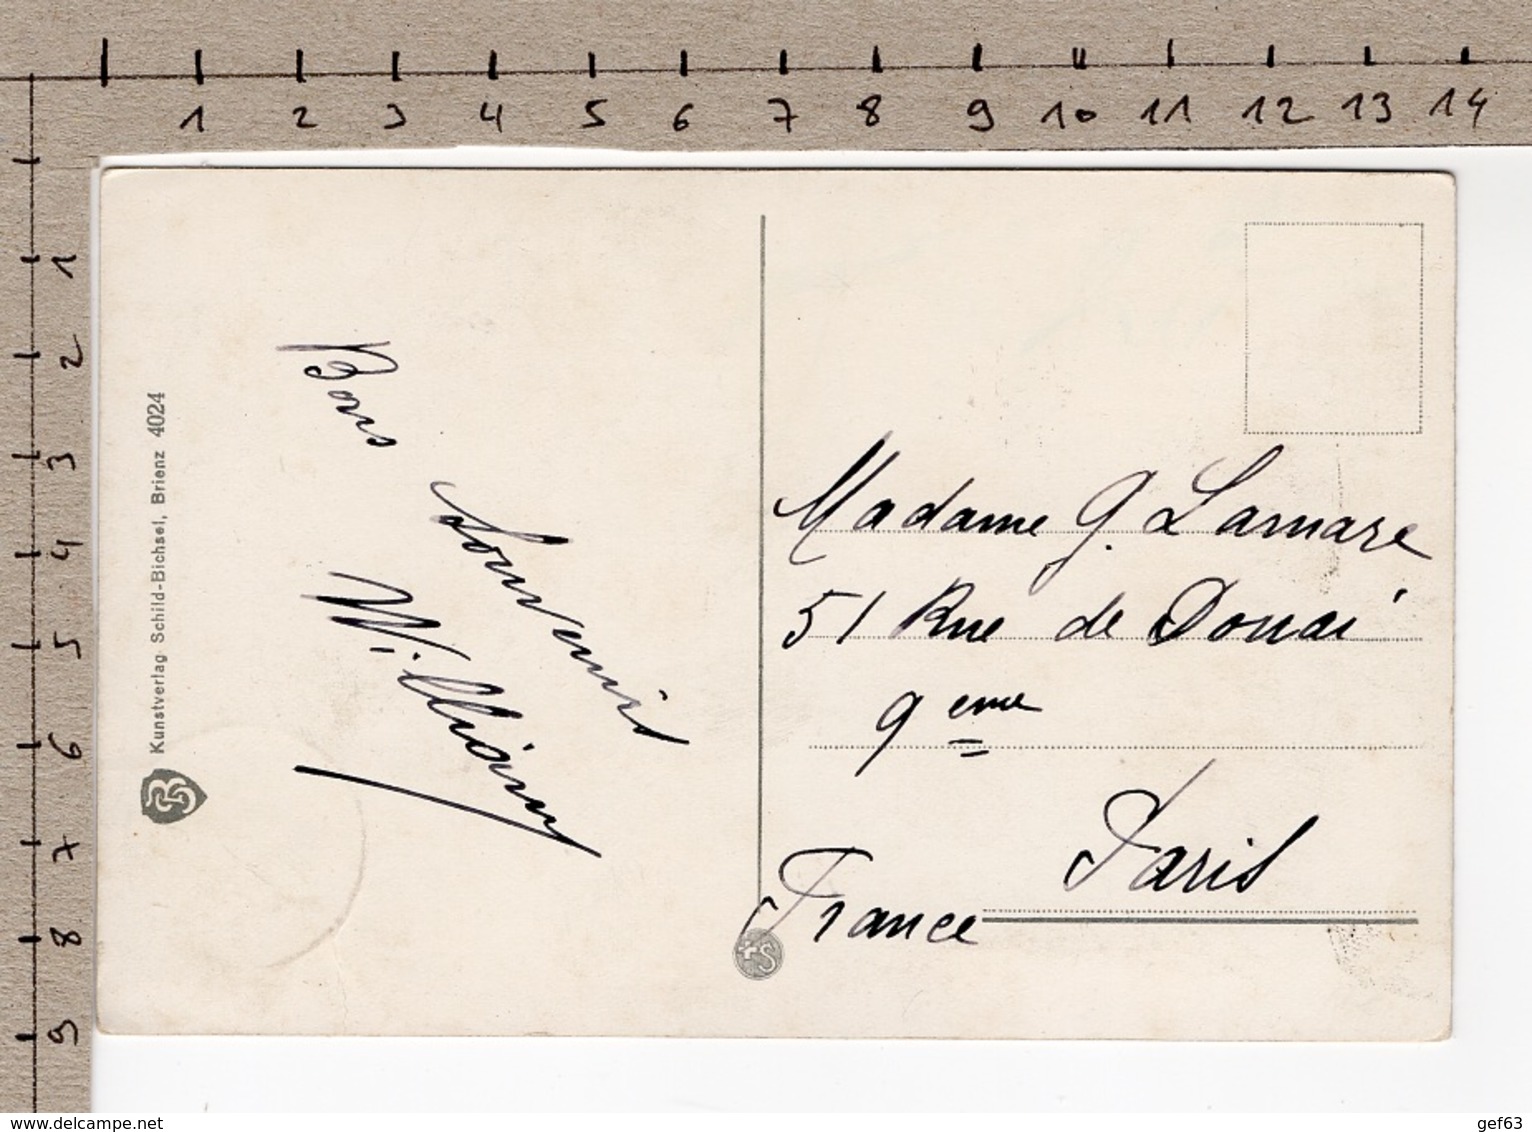 1 2 3 4 5 6 7 8 9 10 11 12 13 14
1
2
3
4
5
6
7
8
9
Kunstverlag Schild-Bichsel, Brienz 4024
SB
Bons
Souvenirs
Madame G. Lamare
51 Rue de Douai
9eme
Paris
France
+S
© delcampe.net
gef63